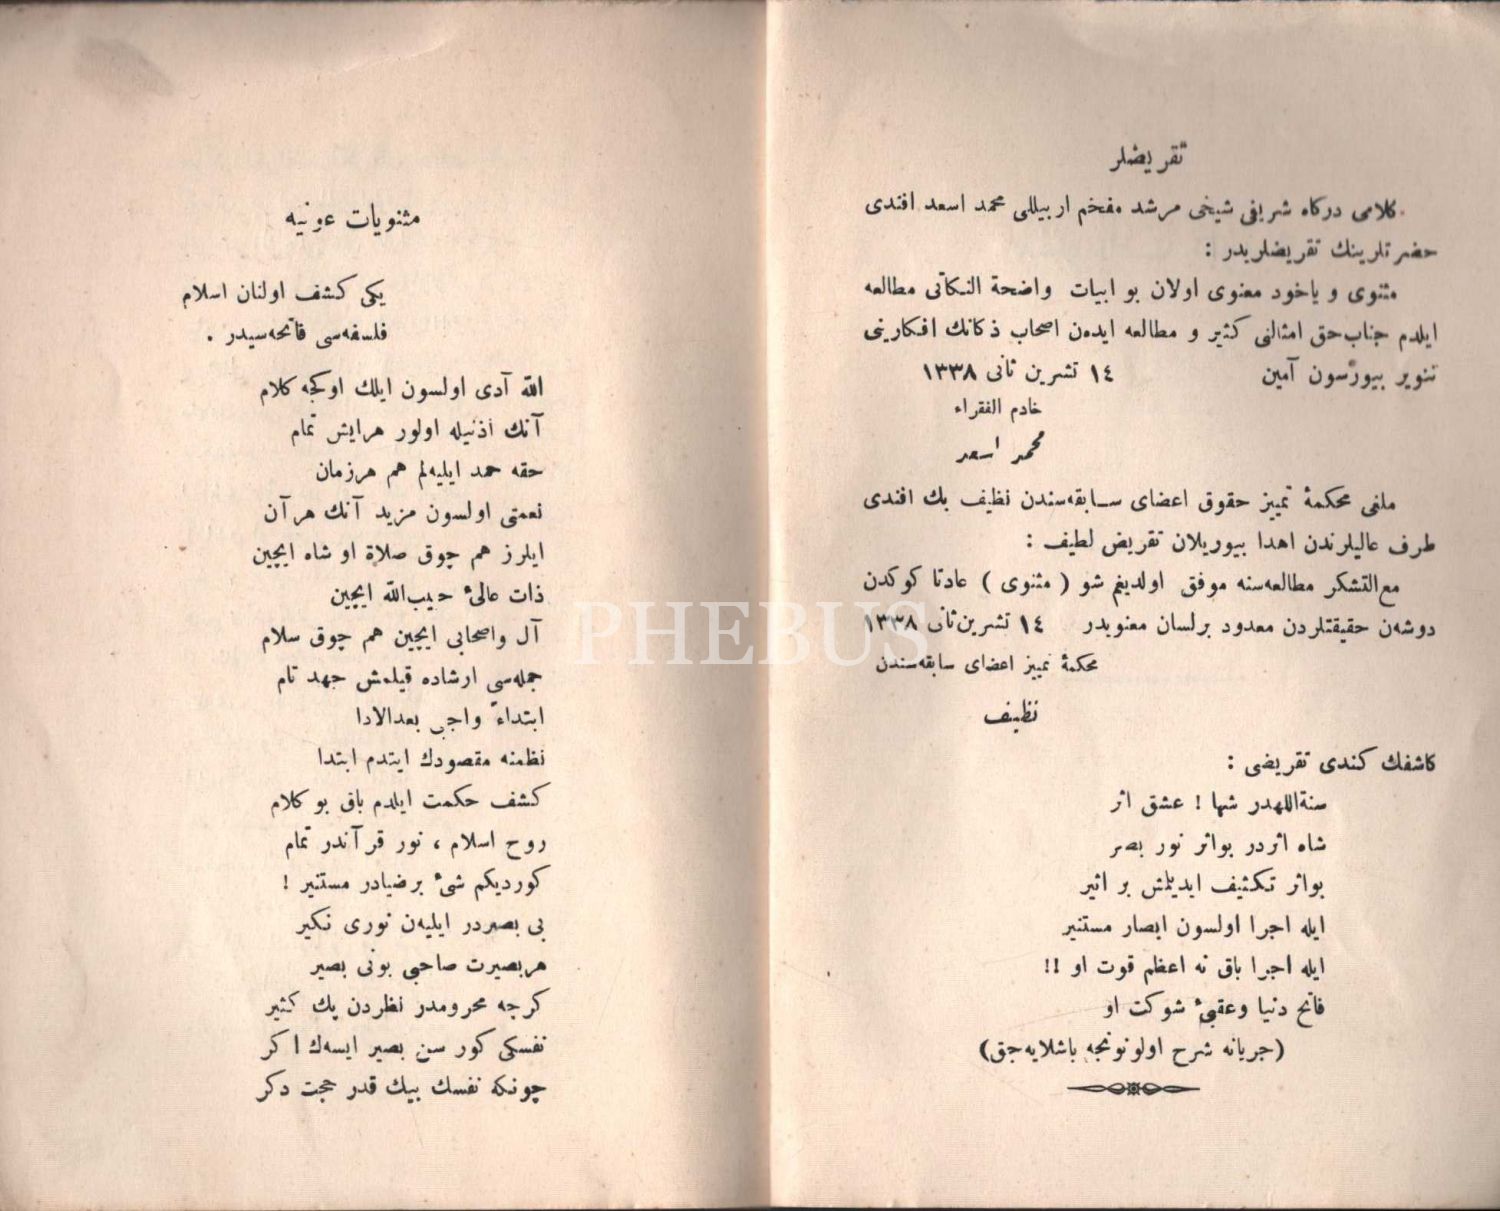 تقريضلر
كلامى دركاه شريفى شيخى مرشد مفخم اربيللى محمد اسعد افندى
حضرتلرينك تقريضلريدر :
مثنوى و ياخود معنوى اولان بو ابيات واضحة النكاتى مطالعه
ايلدم جناب حق امثالنى كثير و مطالعه ايدن اصحاب ذكانك افكارينى
تنوير بيورسون آمين ١٤ تشرين ثانى ١٣٣٨
خادم الفقراء
محمد اسعد
ملغى محكمۀ تمييز حقوق اعضاى سابقه‌سندن نظيف بك افندى
طرف عاليلرندن اهدا بيوريلان تقريض لطيف :
مع التشكر مطالعه‌سنه موفق اولديغم شو ( مثنوى ) عادتا كوكدن
دوشه‌ن حقيقتلردن معدود برلسان معنويدر ١٤ تشرين ثانى ١٣٣٨
محكمۀ تمييز اعضاى سابقه‌سندن
نظيف
كاشفك كندى تقريضى :
سنة اللهدر شها ! عشق اثر
شاه اثردر بواثر نور بصر
بواثر تكثيف ايدلمش بر اثير
ايله اجرا اولسون ابصار مستنير
ايله اجرا باق نه اعظم قوت او !!
فاتح دنيا وعقبئ شوكت او
(جريانه شرح اولونونجه باشلايه‌جق)
مثنويات عونيه
يكى كشف اولنان اسلام
فلسفه‌سى فاتحه‌سيدر .
الله آدى اولسون ايلك اوكجه كلام
آنك اذنيله اولور هرايش تمام
حقه حمد ايليه‌لم هم هرزمان
نعمتى اولسون مزيد آنك هر آن
ايلرز هم چوق صلاة او شاه ايچين
ذات عالئ حبيب الله ايچين
آل واصحابى ايچين هم چوق سلام
جمله‌سى ارشاده قيلمش جهد تام
ابتداءً واجبى بعدالادا
نظمنه مقصودك ايتدم ابتدا
كشف حكمت ايلدم باق بو كلام
روح اسلام ، نور قرآندر تمام
كورديكم شئ برضيادر مستنير !
بى بصردر ايليه‌ن نورى نكير
هربصيرت صاحبى بونى بصير
كرچه محرومدر نظردن پك كثير
نفسكى كور سن بصير ايسه‌ك اكر
چونكه نفسك بيك قدر حجت دكر
PHEBUS